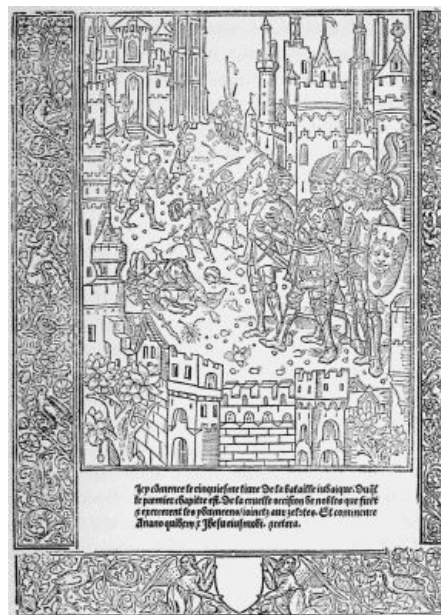 Icy cōmence le cinquiesme liure De la bataille iudaique. Du ql
le premier chapitre est. De la cruelle occision de nobles que firēt
⁊ exercerent les ydumeens/ioinctz aux zelotes. Et commence
Anano quidem ⁊ Jhesu eiusmodi. ⁊cetera.